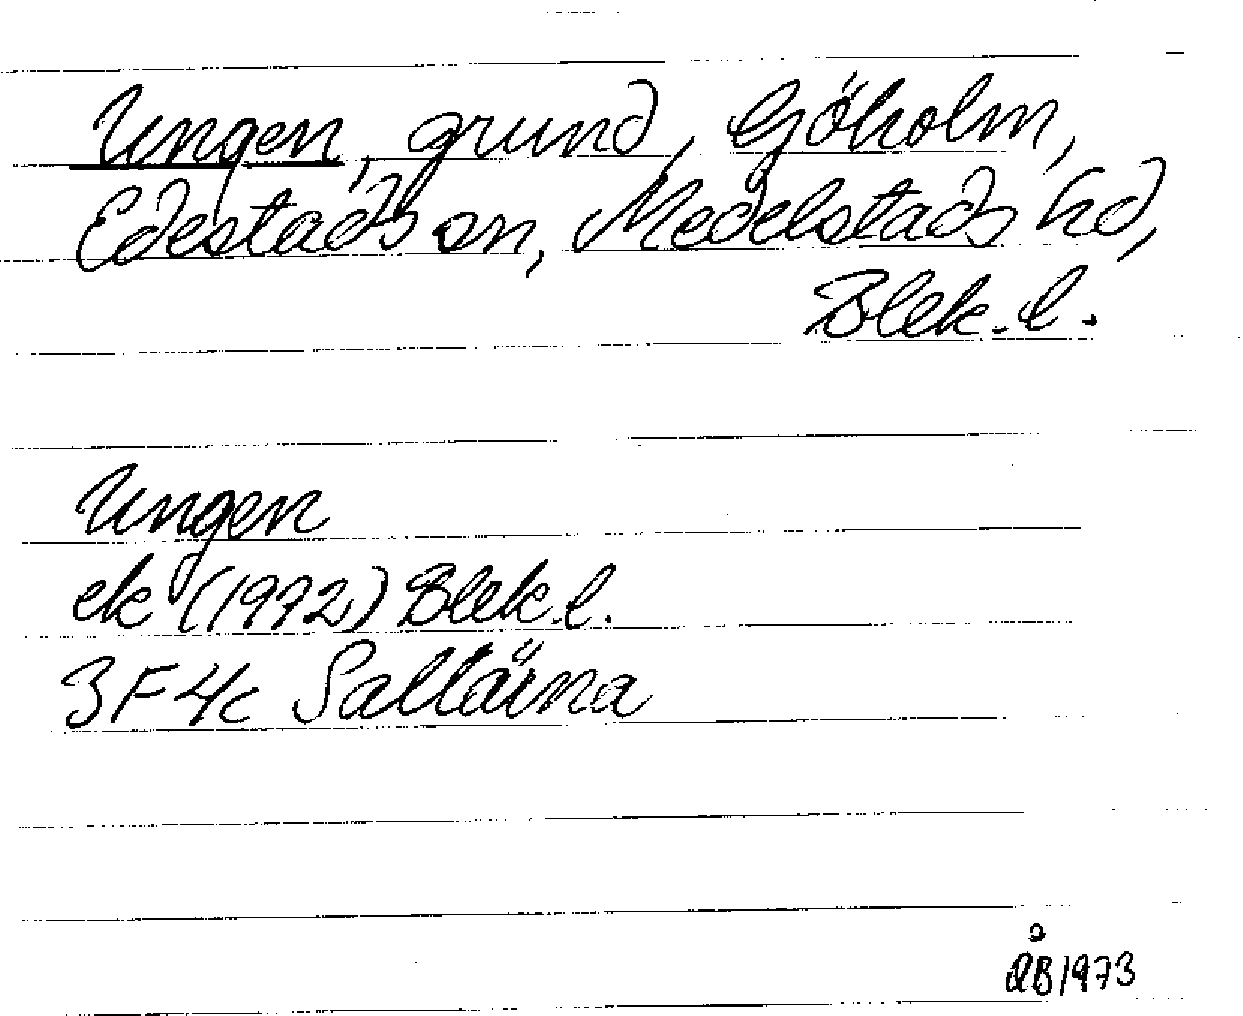 Ungen, grund, Göholm,
Edestads sn, Medelstads hd,
Blek. l.
Ungen
ek (1972) Blek. l.
3F4c Saltärna
ÅB 1973